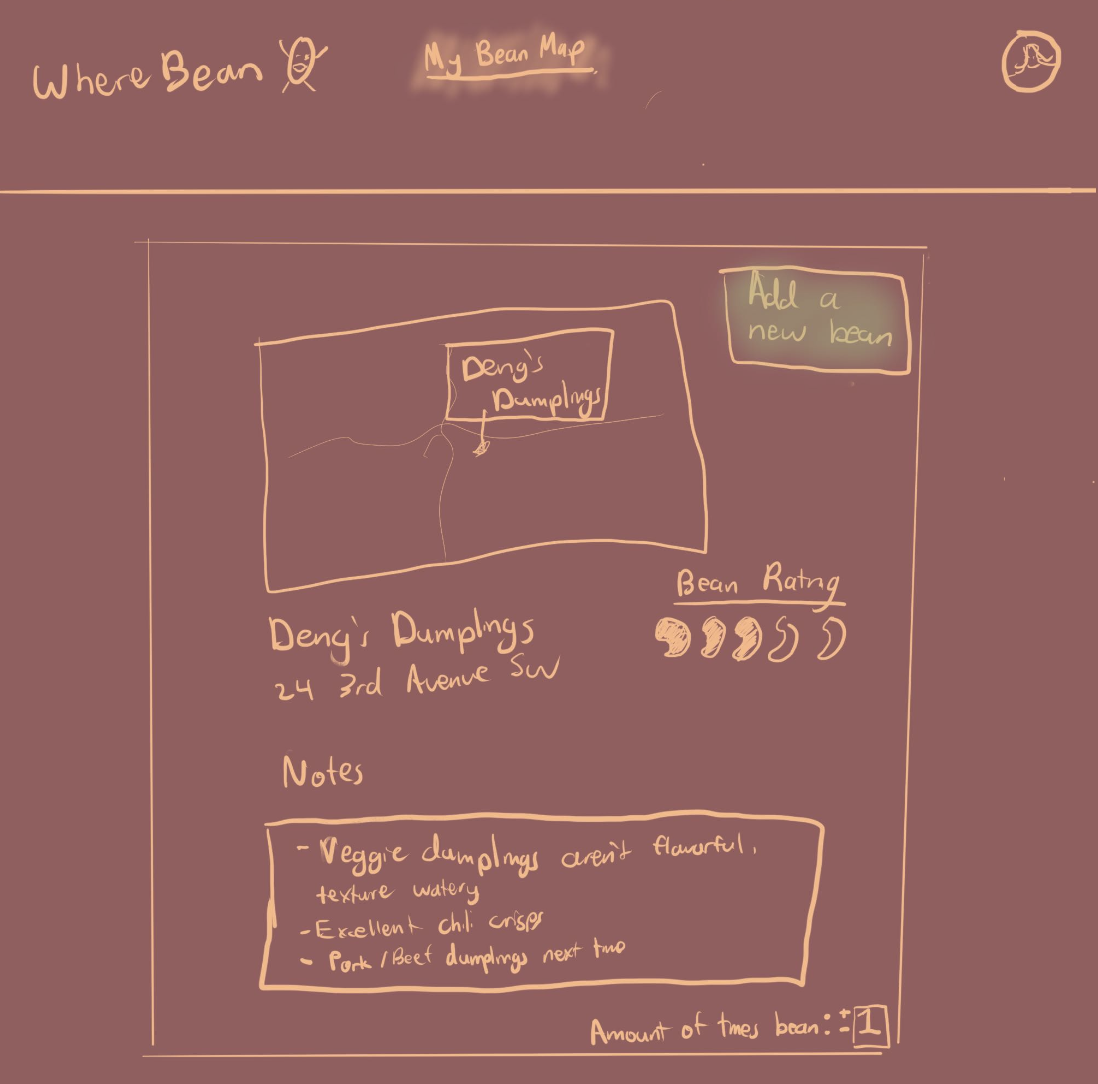 Where Bean
My Bean Map
Add a
new bean
Deng's
Dumplings
Bean Rating
Deng's Dumplings
24 3rd Avenue SW
Notes
- Veggie dumplings aren't flavorful,
texture watery
- Excellent chili crisps
- Pork/Beef dumplings next time
Amount of times bean: +- 1